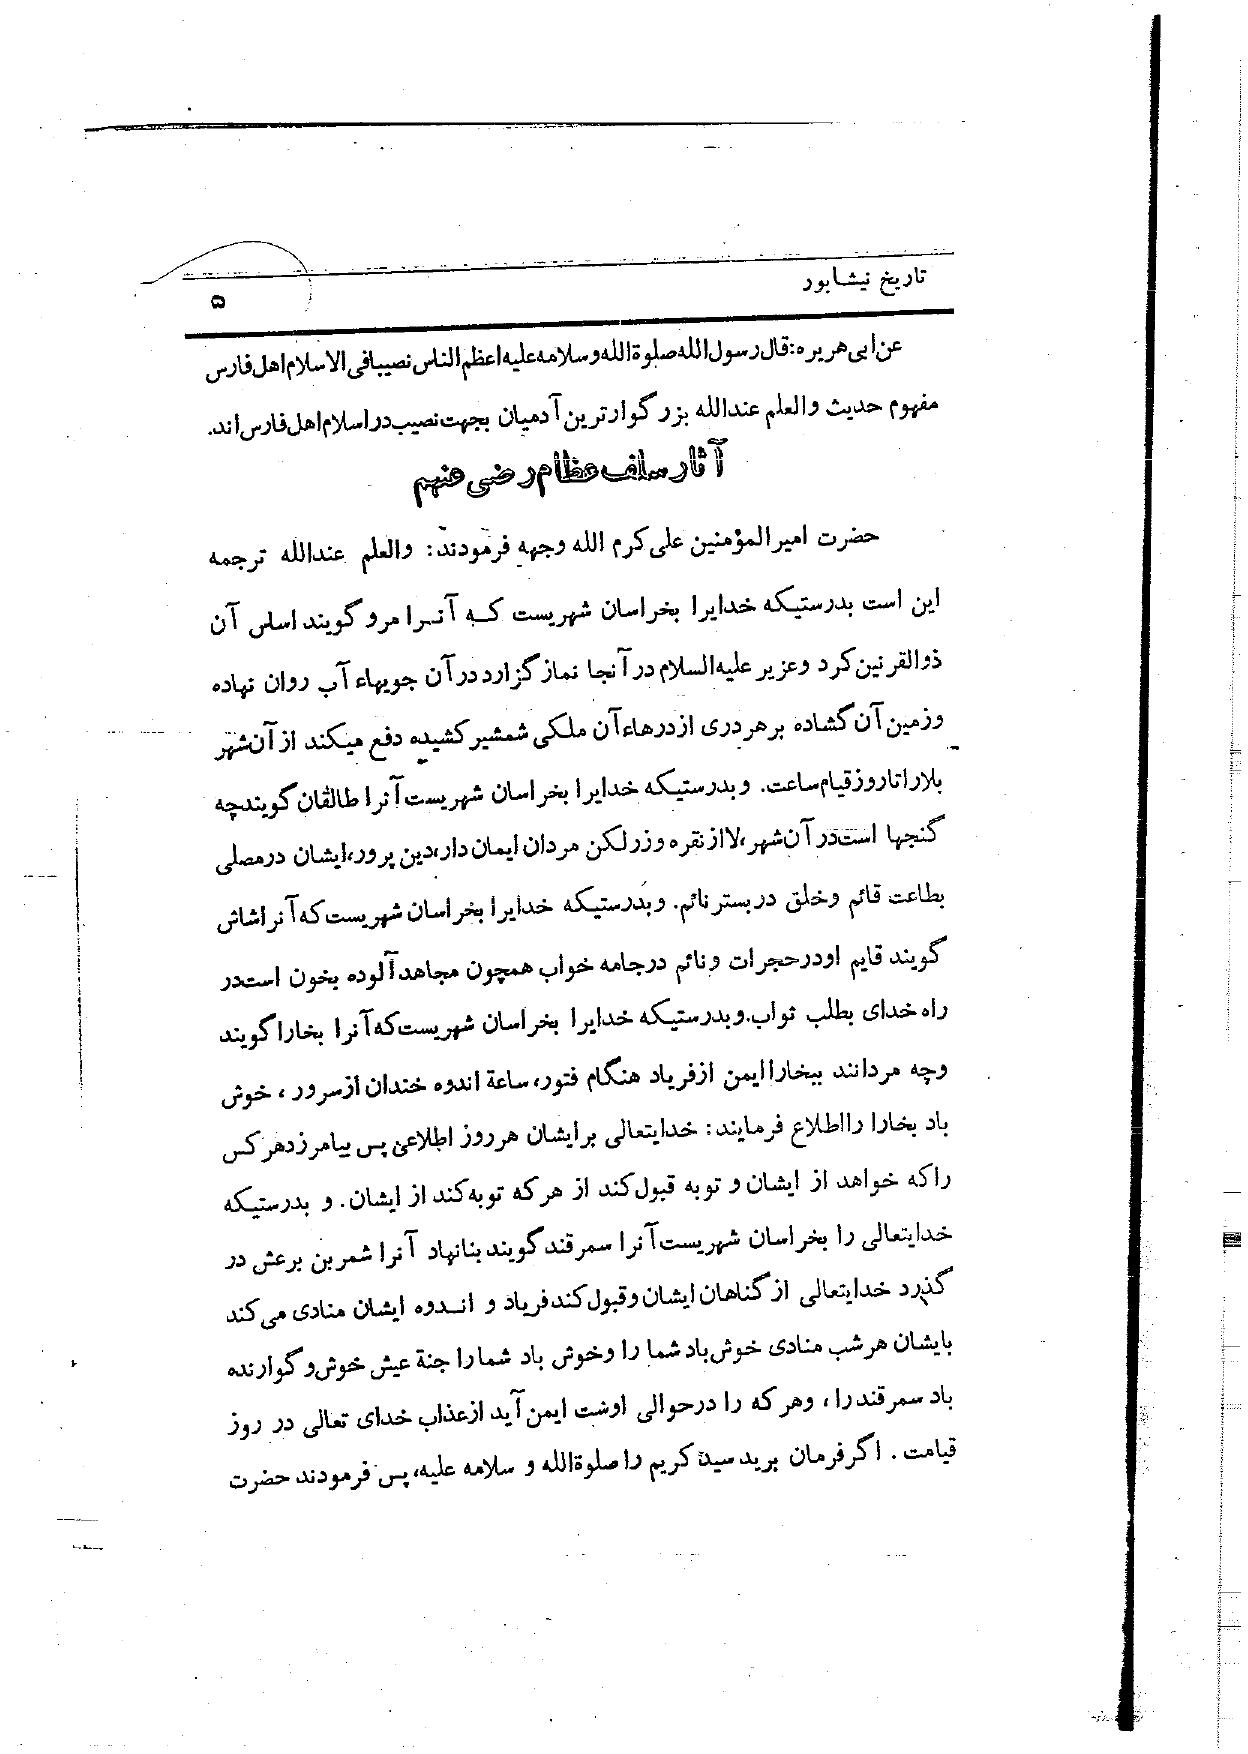 تاریخ نیشابور
۵
عن ابی هریره: قال رسول الله صلوة الله و سلامه علیه اعظم الناس نصیبا فی الاسلام اهل فارس
مفهوم حدیث والعلم عندالله بزرگوارترین آدمیان بجهت نصیب در اسلام اهل فارس اند.
آثار سلف عظام رضی عنهم
حضرت امیرالمؤمنین علی کرم الله وجهه فرمودند: والعلم عندالله ترجمه
این است بدرستیکه خدایرا بخراسان شهریست کـه آنـرا مرو گویند اساس آن
ذوالقرنین کرد و عزیر علیه السلام در آنجا نماز گزارد در آن جویهاء آب روان نهاده
و زمین آن گشاده بر هر دری از درهاء آن ملکی شمشیر کشیده دفع میکند از آن شهر
بلا را تا روز قیام ساعت. و بدرستیکه خدایرا بخراسان شهریست آنرا طالقان گویند چه
گنجها است در آن شهر، لا از نقره و زر لکن مردان ایمان دار، دین پرور، ایشان در مصلی
بطاعت قائم و خلق در بستر نائم. و بدرستیکه خدایرا بخراسان شهریست که آنرا شاش
گویند قایم او در حجرات و نائم در جامه خواب همچون مجاهد آلوده بخون است در
راه خدای بطلب ثواب. و بدرستیکه خدایرا بخراسان شهریست که آنرا بخارا گویند
وچه مردانند ببخارا ایمن از فریاد هنگام فتور، ساعة اندوه خندان از سرور ، خوش
باد بخارا را اطلاع فرمایند: خدایتعالی بر ایشان هر روز اطلاعی پس بیامرزد هر کس
را که خواهد از ایشان و توبه قبول کند از هر که توبه کند از ایشان. و بدرستیکه
خدایتعالی را بخراسان شهریست آنرا سمرقند گویند بنا نهاد آنرا شمر بن برعش در
گذرد خدایتعالی از گناهان ایشان و قبول کند فریاد و انـدوه ایشان منادی می کند
بایشان هر شب منادی خوش باد شما را و خوش باد شما را جنة عیش خوش و گوارنده
باد سمرقند را ، و هر که را در حوالی اوشت ایمن آید از عذاب خدای تعالی در روز
قیامت . اگر فرمان برید سید کریم را صلوة الله و سلامه علیه، پس فرمودند حضرت